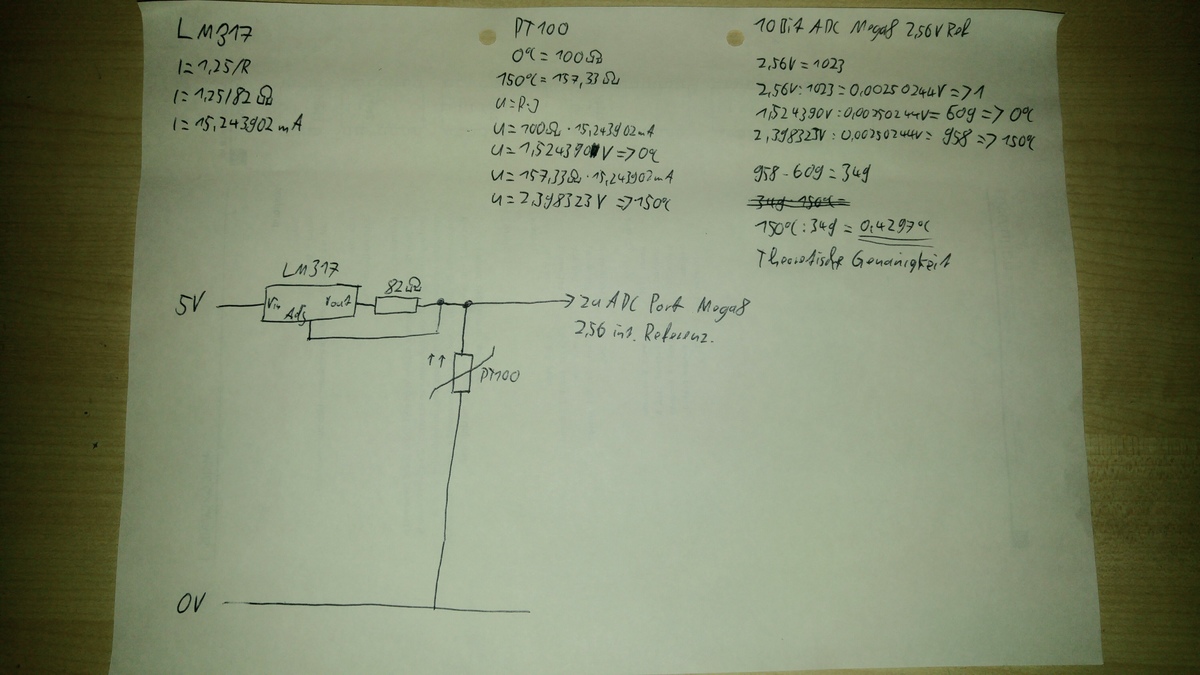 LM317
I=1,25/R
I=1,25/82Ω
I=15,243902mA
PT100
0°C=100Ω
150°C=157,33Ω
U=R·J
U=100Ω·15,243902mA
U=1,524390V=>0°C
U=157,33Ω·15,243902mA
U=2,398323V=>150°C
10Bit ADC Mega8 2,56V Ref
2,56V=1023
2,56V:1023=0,00250244V=>1
1,524390V:0,00250244V=609=>0°C
2,398323V:0,00250244V=958=>150°C
958-609=349
349·150°C=
150°C:349=0,4297°C
Theoretische Genauigkeit
LM317
5V
Vin
Adj
Vout
82Ω
zu ADC Port Mega8
2,56 int. Referenz.
↑↑
PT100
0V